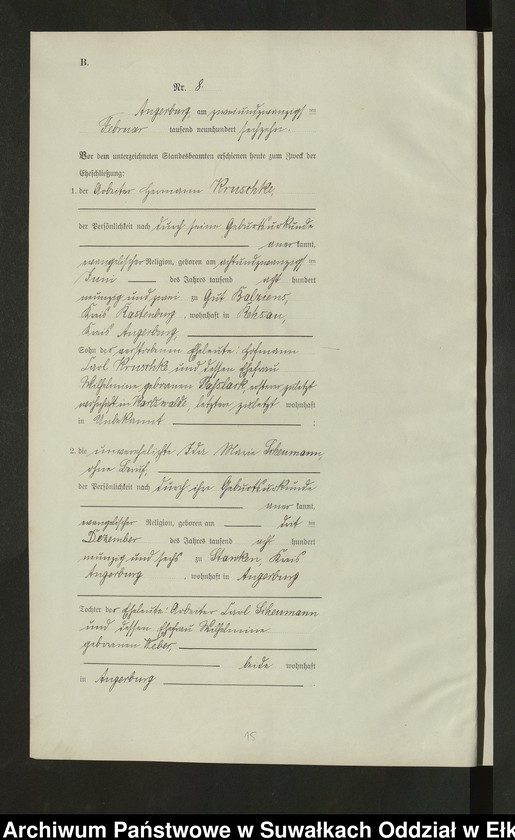 B.
Nr. 8.
Angerburg am zweiundzwanzigsten
Februar tausend neunhundert sechzehn.
Vor dem unterzeichneten Standesbeamten erschienen heute zum Zweck der
Eheschließung:
1. der Arbeiter Hermann Kruschke,
der Persönlichkeit nach durch seine Geburtsurkunde
anerkannt,
evangelischer Religion, geboren am achtundzwanzigsten
Juni des Jahres tausend acht hundert
neunzig und zwei zu Gut
Kreis Rastenburg, wohnhaft in Rehsau,
Kreis Angerburg,
Sohn der verstorbenen Eheleute:
Carl Kruschke und dessen Ehefrau
Wilhelmine geborenen ersterer zuletzt
wohnhaft in letztere zuletzt wohnhaft
in Unbekannt ;
2. die unverehelichte Ida Marie Scheumann
ohne Beruf,
der Persönlichkeit nach durch ihre Geburtsurkunde
anerkannt,
evangelischer Religion, geboren am
Dezember des Jahres tausend acht hundert
neunzig und sechs zu Kreis
Angerburg, wohnhaft in Angerburg
Tochter der Eheleute: Arbeiter Carl Scheumann
und dessen Ehefrau Wilhelmine
geborenen Weber,
beide wohnhaft
in Angerburg
15
Archiwum Państwowe w Suwałkach Oddział w Ełk